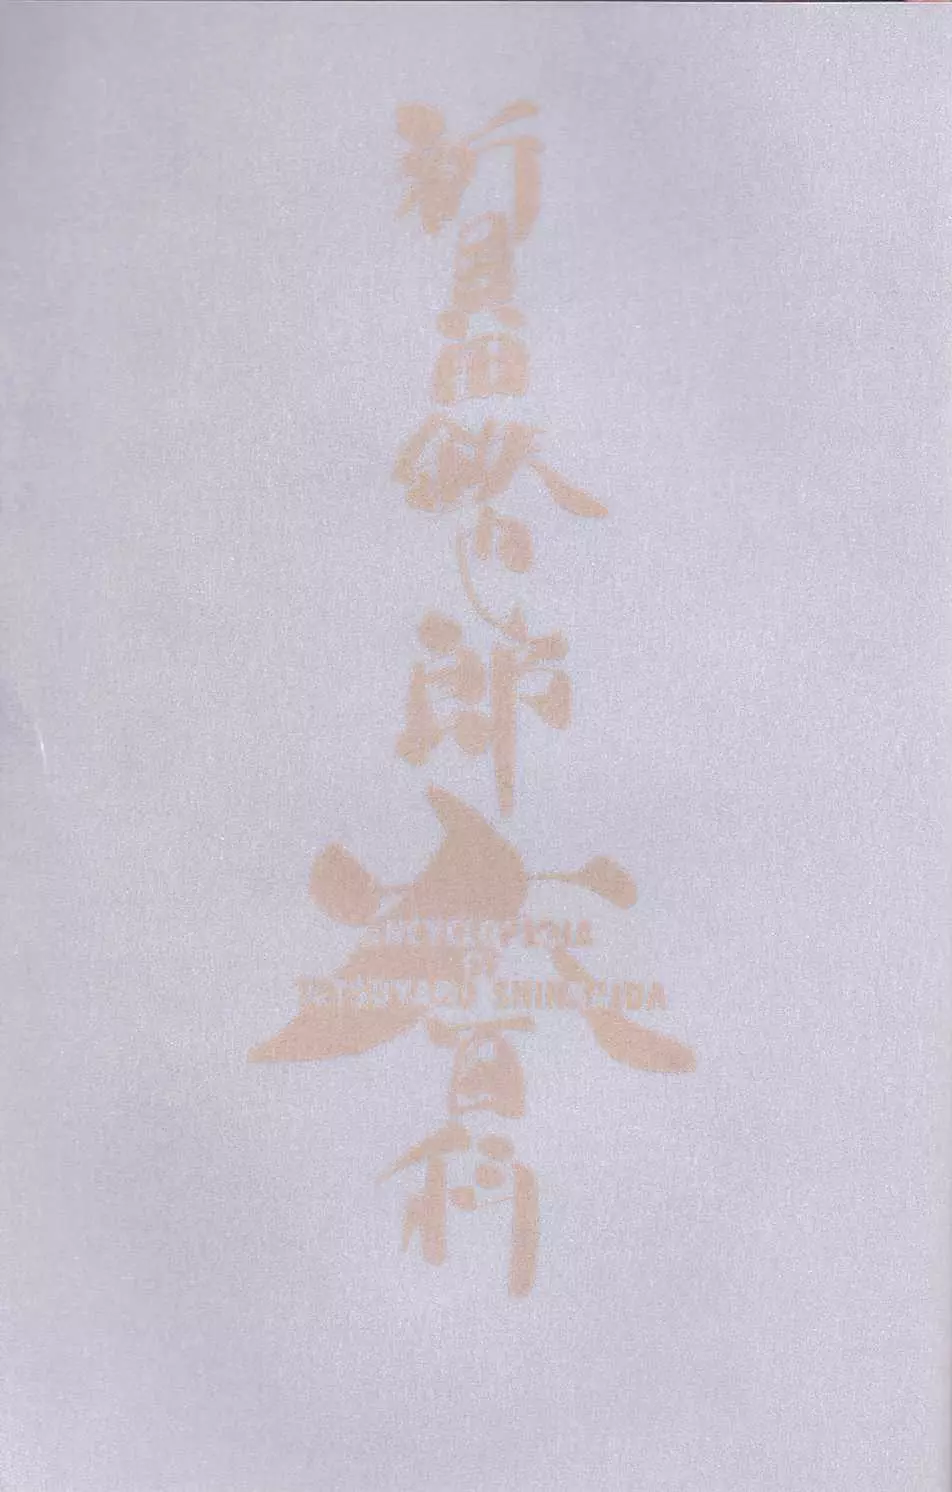 新貝田鉄也郎大百科
ENCYCLOPEDIA
OF
SHINKAIDA